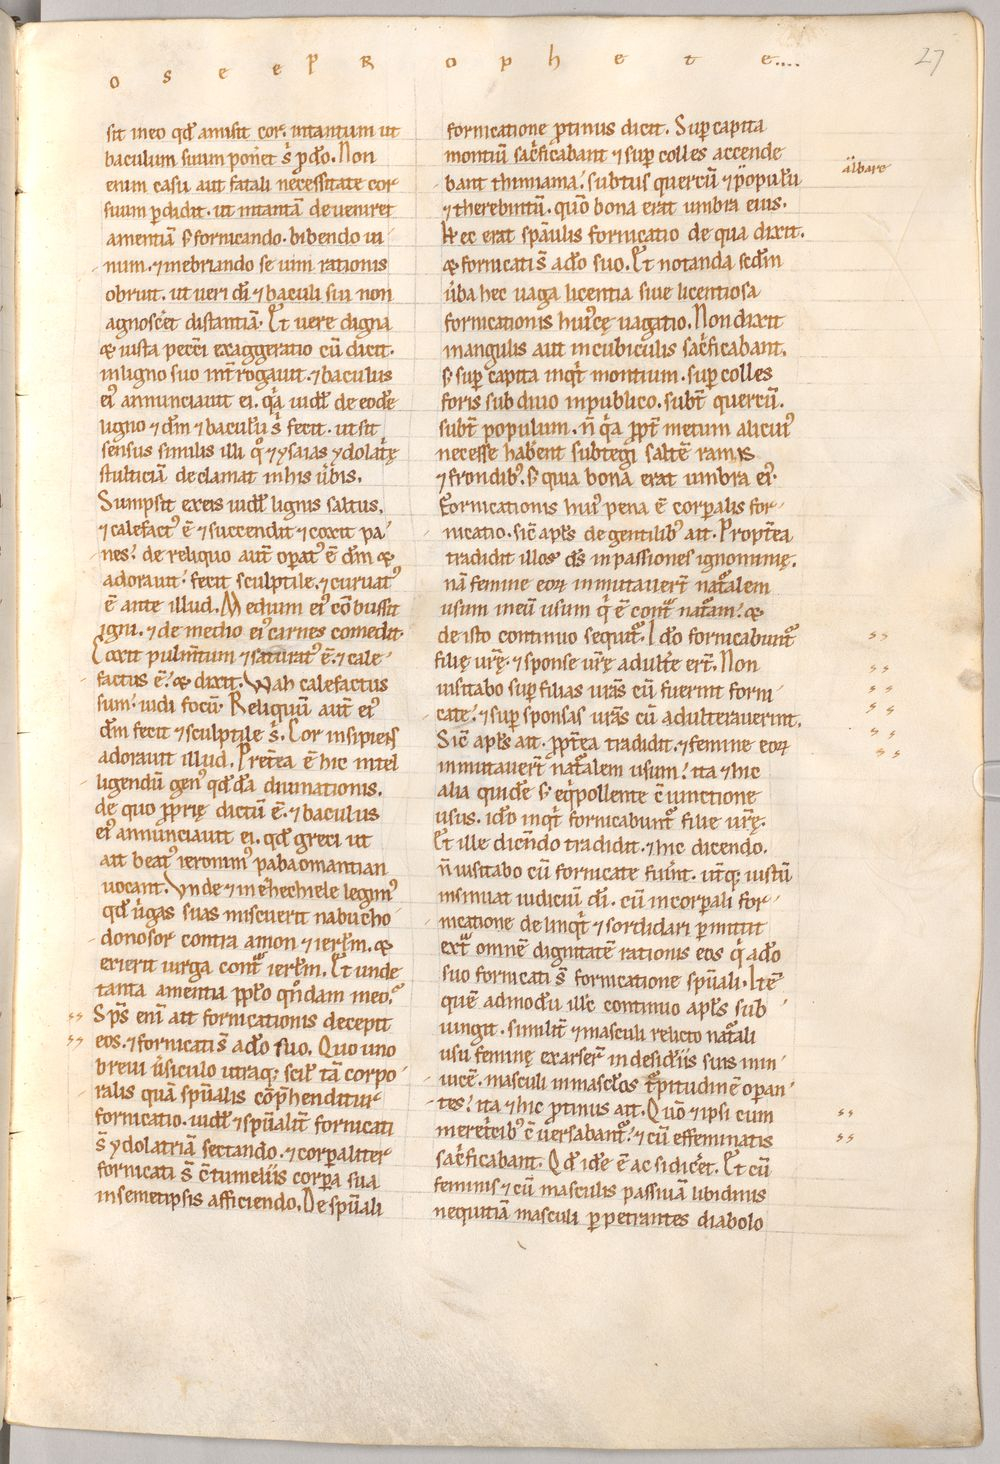 oseep̅Rophete....
27
sit in eo qd̕ amisit cor. in tantum ut
baculum suum ponet s̅ p̅do. Non
enim casu aut fatali necessitate cor
suum p̲didit. ut in tantā deveniret
amentiā s; fornicando. bibendo ui
num. ⁊ inebriando se uim rationis
obruit. ut ueri di̅ ⁊ baculi sui non
agnosc̕et distantiā. Et uere digna
& iusta pecc̅i exaggeratio cū dicit.
in ligno suo int̅rogauit. ⁊ baculus
eiꝰ annunciauit ei. qa̕ uidl̕ de eode̅
ligno ⁊ dm̅ ⁊ bacul̕u s̅ fecit. ut sit
sensus similis illi qͦ ⁊ ysaias ydolat̕ę
stulticiā declamat in his u̕bis.
Sumpsit ex eis uidl̕ lignis saltus.
⁊ calefactꝰ ē ⁊ succendit ⁊ coxit pa
nes. de reliquo aut̅ opatꝰ ē dm̅ &
adorauit. fecit sculptile. ⁊ curuatꝰ
ē ante illud. Medium eiꝰ cōbussit
igni. ⁊ de medio eiꝰ carnes comedit.
Coxit pulm̅tum ⁊ saturatꝰ ē. ⁊ cale
factus ē. & dixit. Wah calefactus
sum. uidi focū. Reliquū aut̅ eiꝰ
dm̅ fecit ⁊ sculptile s̅. Cor insipiens
adorauit illud. P̲ret̅ea ē hic intel
ligendū genꝰ qd̕da̅ diuinationis.
de quo pp̲rię dictū ē. ⁊ baculus
eiꝰ annunciauit ei. qd̕ greci ut
ait beatꝰ ieronimꝰ pabaomantian
uocant. Vnde ⁊ in ezechiele legimꝰ
qd̕ u̕gas suas miscuerit nabucho
donosor contra amon ⁊ ierlm̅. &
exierit uirga cont̅ ierlm̅. Et unde
tanta amentia pp̲l̕o qn̅dam meo.
Sp̅s eni̅ ait fornicationis decepit
eos. ⁊ fornicati s̅ a do̅ suo. Quo uno
breui u̕siculo utraq; scil̕ tā corpo
ralis quā sp̅ualis cōp̅henditur
fornicatio. uidl̕ ⁊ sp̅ualit̅ fornicati
s̅ ydolatriā sectando. ⁊ corp̲aliter
fornicati s̅ c̅tumeliis corp̲a sua
in semetipsis afficiendo. De sp̅uali
fornicatione p̲tinus dicit. Sup̲ capita
montiū sac̕ficabant ⁊ sup̲ colles accende
bant thimiama. subtus quercū ⁊ populu̅
⁊ therebintū. quo̅ bona erat umbra eius.
Hec erat sp̅aulis fornicatio de qua dixit.
& fornicati s̅ a do̅ suo. Et notanda scdm̅
u̕ba hec uaga licentia siue licentiosa
fornicationis huiꝰcę uagatio. Non dixit
in angulis aut in cubiculis sac̕ficabant.
s; sup̲ capita inqt̕ montium. sup̲ colles
foris sub diuo in publico. subt̅ quercū.
subt̅ populum. n̅ qa̕ pp̲t̅ metum alicuiꝰ
necesse hab̕ent subtegi salte̅ ramis
⁊ frondibꝰ. s; quia bona erat umbra eiꝰ.
Fornicationis huiꝰ pena ē corp̲alis for
nicatio. sic̅ apl̕s de gentilibꝰ ait. Propt̅ea
tradidit illos ds̅ in passiones ignominię.
nā femine eoꝝ inmutauer̅t nat̅alem
usum in eū usum q̕ ē cont̅ nat̅am. &
de isto continuo sequit̅. Ido̅ fornicabunt̅
filię ur̅ę. ⁊ sponse ur̅ę adult̕e er̅t. Non
uisitabo sup̲ filias ur̅as cū fuerint forni
cate. ⁊ sup̲ sponsas ur̅as cū adulterauerint.
Sic̅ apl̕s ait. pp̲t̅ea tradidit. ⁊ femine eoꝝ
inmutauer̅t nat̅alem usum. ita ⁊ hic
alia quide̅ s; eq̕pollente c̅iunctione
usus. ido̅ inqt̕ fornicabunt̅ filie ur̅ę.
Et ille dicendo tradidit. ⁊ hic dicendo.
n̅ uisitabo cū fornicate fuin̕t. ut̅q; iustū
insinuat iudiciū di̅. cū in corp̲ali for
nicatione de linqt̕ ⁊ sordidari p̲mittit
ext̅ omne̅ dignitate̅ rationis eos q̕ a do̅
suo fornicati s̅ fornicatione sp̅uali. Ite̅
que̅ admodu̅ illic continuo apl̕s sub
iungit. similit̅ ⁊ masculi relicto nat̅ali
usu feminę exarser̅t in desid̕iis suis inui
uice̅. masculi in mascl̕os t̅pitudine̅ operan
tes. ita ⁊ hic p̲tinus ait. Quo̅ ⁊ ipsi cum
meret̕cibꝰ c̅uersabant̅. ⁊ cū effeminatis
sac̕ficabant. Qd̕ ide̅ ē ac si dic̕et. Et cū
feminis ⁊ cū masculis passiuā libidinis
nequitiā masculi p̲petrantes diabolo
albare